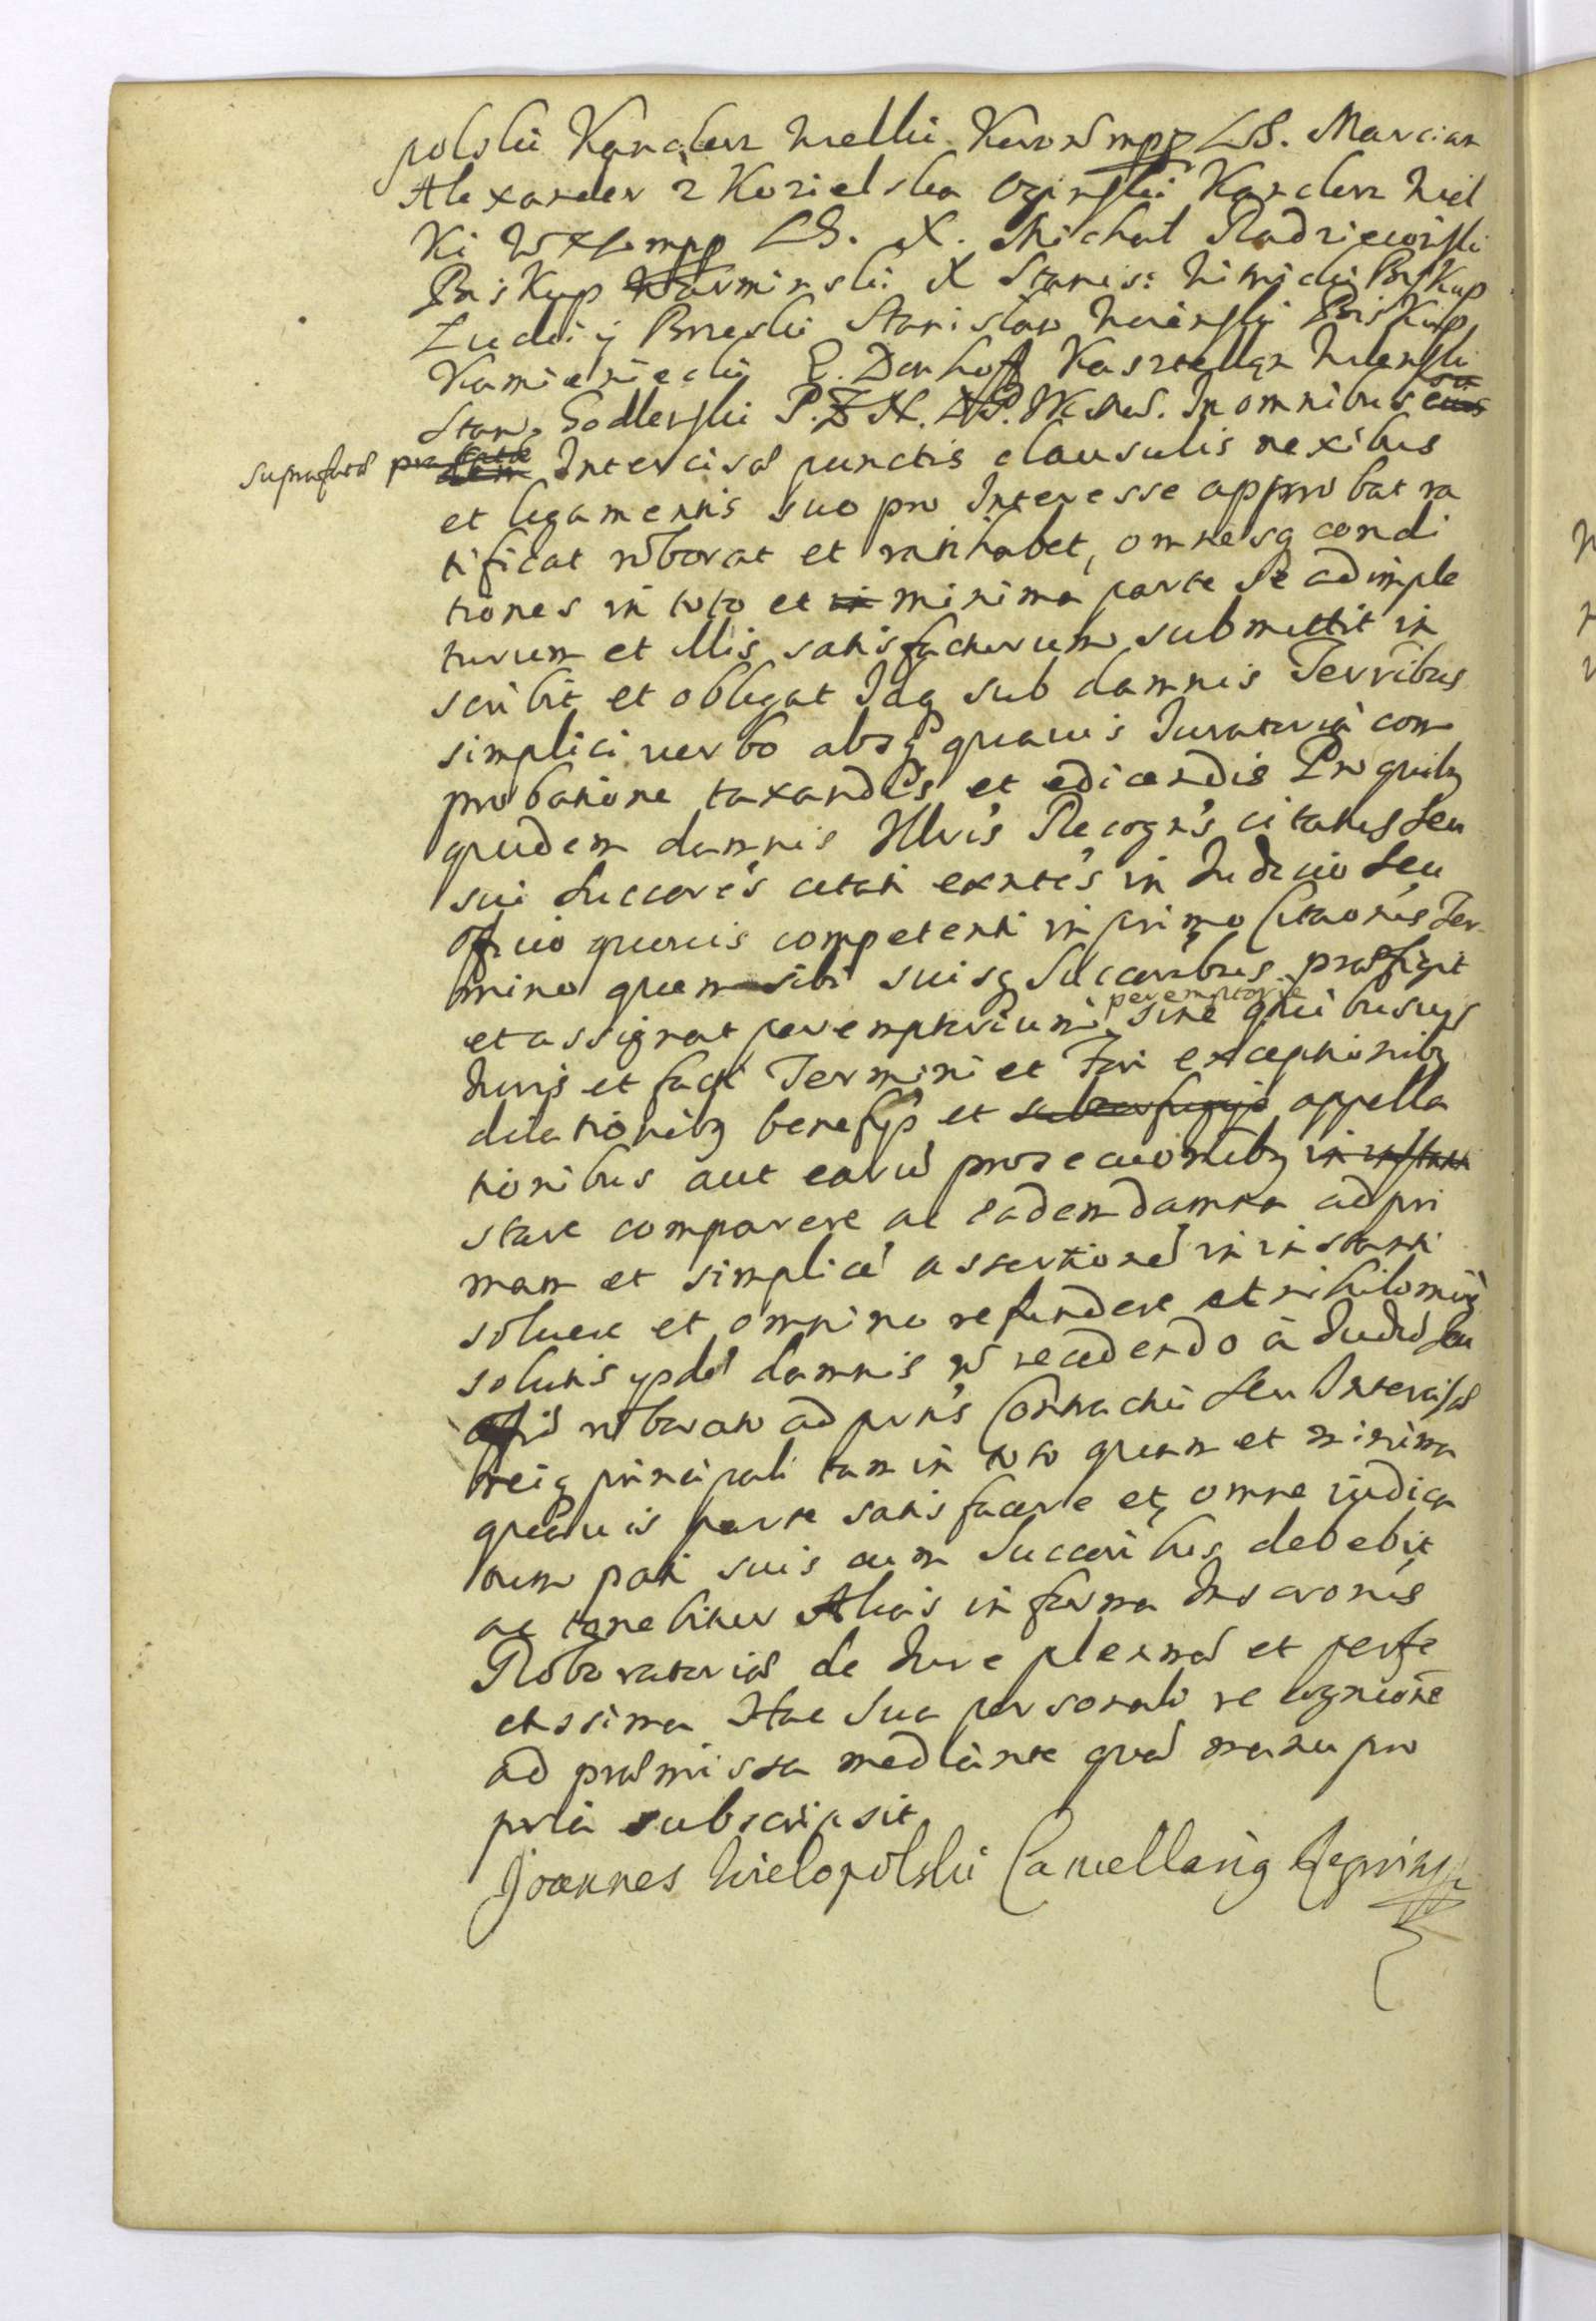 polski Kanclerz Wielki Koron mpp LS. Marcian
Alexander z Kozielska Oginski Kanclerz Wiel
Ki WXL mpp LS. X. Michał Radzieiowski
Biskup Warminski X Stanis: Witwicki Biskup
Łucki y Brzeski Stanisław Woienski Biskup
Kamieniecki E. Donhoff Kasztellan Wilenski
Stan: Godlewski P.Z.N. In omnibus
suprafatæ Intercisæ punctis clausulis nexibus
et ligamentis suo pro Interesse approbat ra
tificat roborat et ratihabet, omnesq condi
tiones in toto et in minima parte se adimple
turum et illis satisfacturum submittit in
scribit et obligat Idq sub damnis Terribus
simplici verbo absq quavis Juratoria com
probatione taxandis et edicendis Pro quibq
quidem damnis Illris Recogn's citatus seu
sui Succores citati exntes in Judicio seu
Officio quovis competenti in primo Citaonis Ter
mino quem sibi suisq Succoribus præfigit
et assignat peremptorium peremptorie sine quibusuis
Juris et facti Termini et Fori exceptionibq
dilationibq beneficys et subterfugijs appella
tionibus aut earum prosecuionibq in instanti
stare comparere ac eadem damna ad pri
mam et simplice assertione in instanti
soluere et omnino refundere et nihilominq
solutis ypde damnis no recedendo à Judio seu
Offio roboraon ad pntis Contractui seu Intercisæ
reiq principali tam in toto quam et minima
quavis parte satisfacere et omne iudica
tum pati suis cum Succoribus debebit
ac tenebitur Alias in forma Inscronis
Roboratoriæ de Jure plenæ et perfe
ctissima Hac Sua personali recognicone
ad præmissa mediante qua manu pro
pria subscripsit
Joannes Wielopolski Cancellariq Regni mp